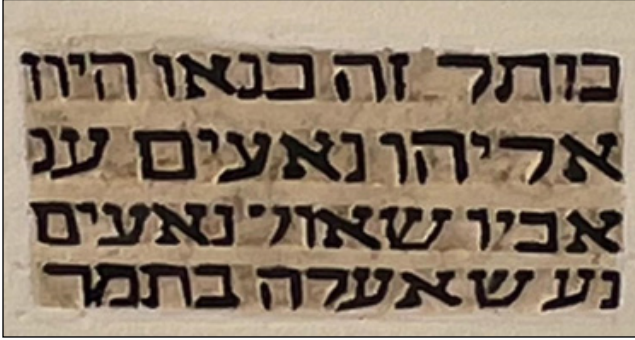 כותל זה בנאו היוו
אליהו נאעים ענ
אביו שאול נאעים
נע שאערה בתמר